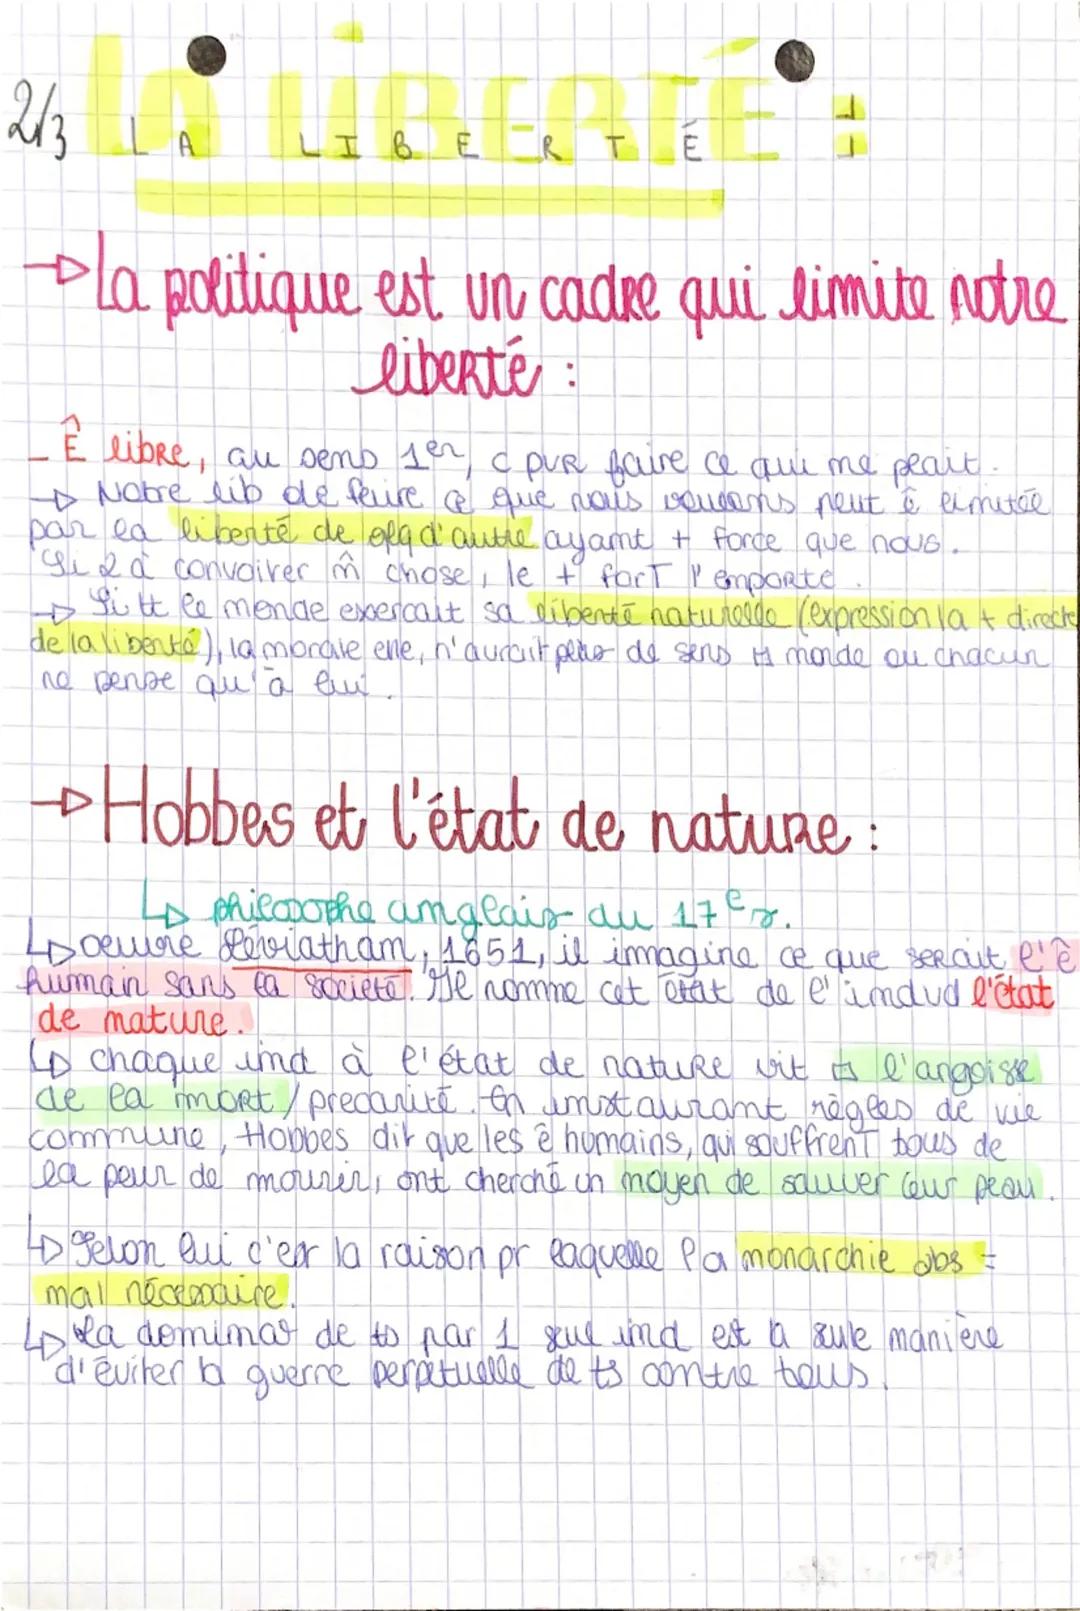 2/3 LA LIBERTÉ :
LA LIBERTÉ
→ La politique est un cadre qui limite notre
liberté :
_ Ê libre, au sens 1er, c pvr faire ce qui me plait.
→ Notre lib de faire ce que nous voulons peut ê limitée
par la liberté de qlq d'autre ayant + force que nous.
Si 2 à convoiter m̂ chose, le + fort l'emporte.
→ Si tt le monde exerçait sa liberté naturelle (expression la + directe
de la liberté), la morale elle, n'aurait plus de sens monde où chacun
ne pense qu'à lui.
→ Hobbes et l'état de nature :
↳ philosophe anglais du 17e s.
↳ oeuvre Léviatham, 1651, il imagine ce que serait l'ê
humain sans la société. Il nomme cet état de l'indvd l'état
de nature.
↳ chaque ind à l'état de nature vit ds l'angoisse
de la mort / précarité. En instaurant règles de vie
commune, Hobbes dit que les ê humains, qui souffrent tous de
la peur de mourir, ont cherché un moyen de sauver leur peau.
↳ Selon lui c'est la raison pr laquelle la monarchie abs =
mal nécessaire.
↳ La dominat° de ts par 1 seul ind est la sule manière
d'éviter la guerre perpétuelle de ts contre tous.